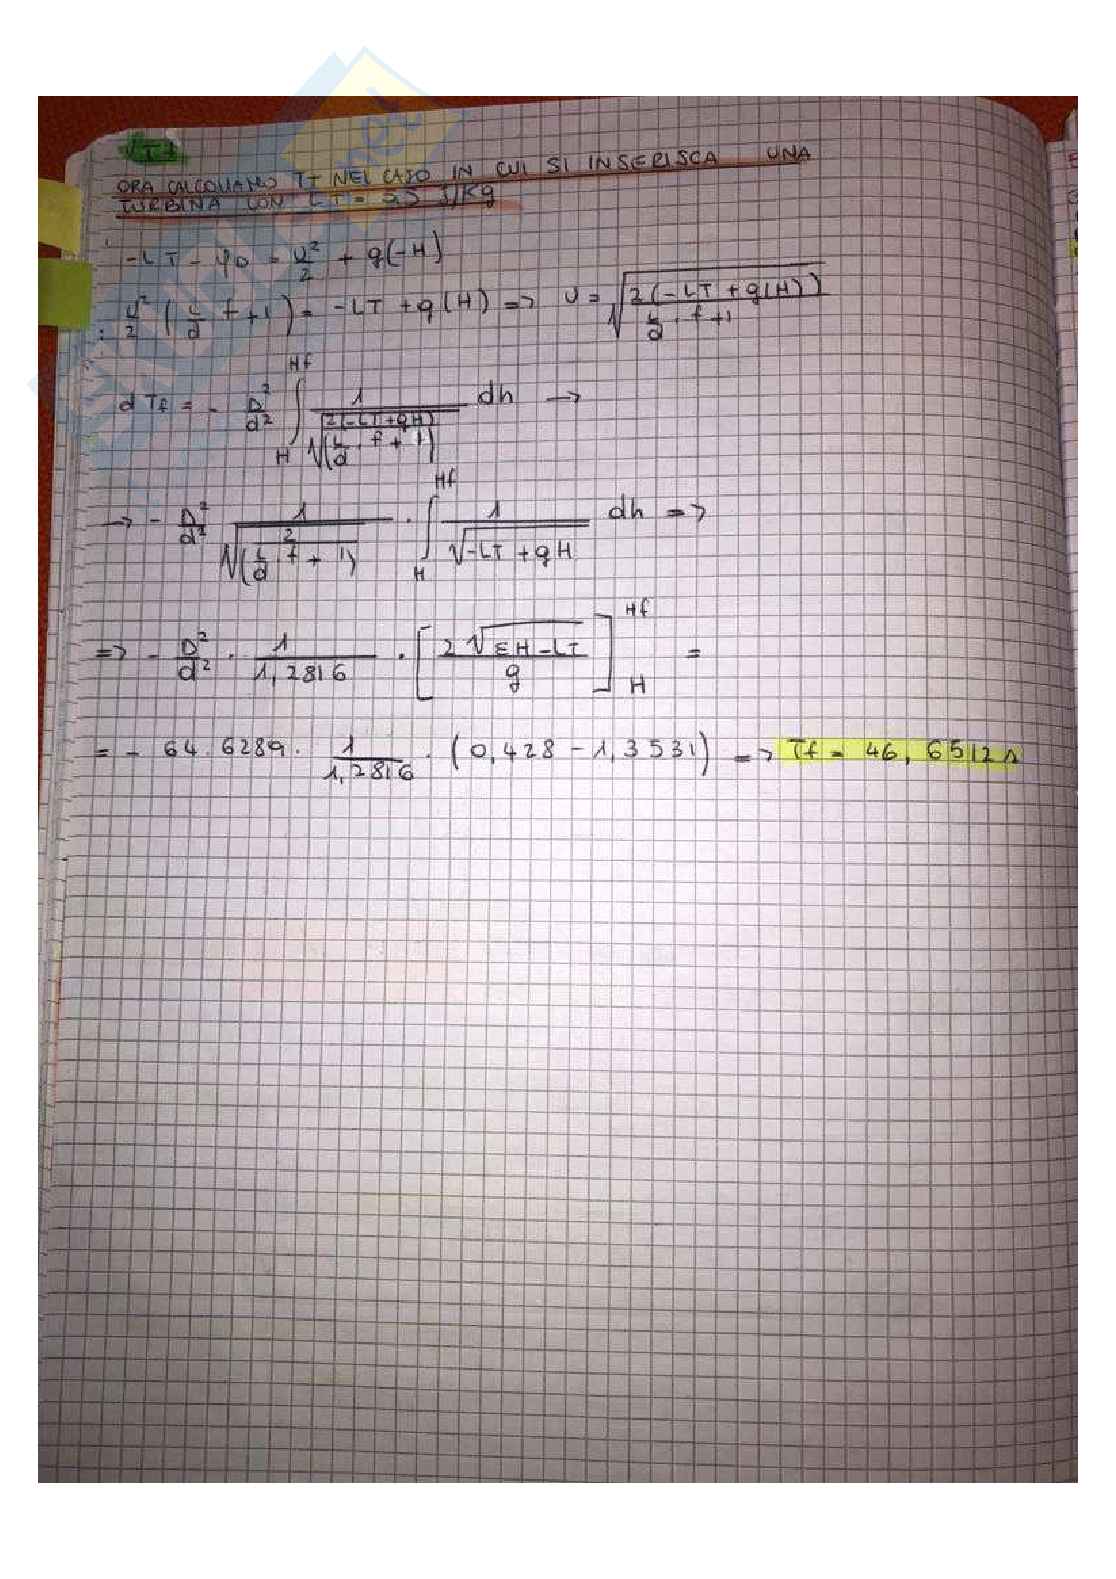 √Tf
ORA CALCOLIAMO Tf NEL CASO IN CUI SI INSERISCA UNA
TURBINA CON LT = J/kg
-LT - φD = U²/2 + g(-H)
U²/2 (L/d f + 1) = -LT + g(H) => U = √(2(-LT + g(H)) / (L/d · f + 1))
dTf = - D²/d² ∫_H^Hf 1/√(2(-LT + gH)/(L/d · f + 1)) dh →
→ - D²/d² 1/√(2/(L/d · f + 1)) · ∫_H^Hf 1/√(-LT + gH) dh =>
=> - D²/d² · 1/1,2816 · [2√(gH - LT)/g]_H^Hf =
= - 64.6289 · 1/1,2816 · (0,428 - 1,3531) => Tf = 46,6512 s